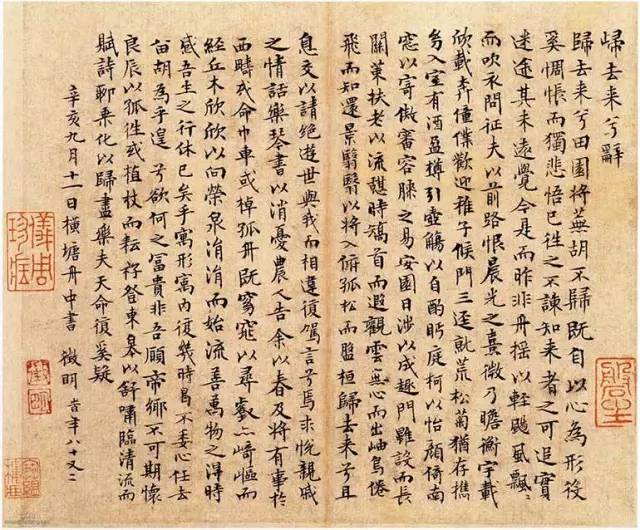 歸去来兮辭
歸去来兮田園将蕪胡不歸既自以心為形役
奚惆悵而獨悲悟已往之不諫知来者之可追實
迷途其未遠覺今是而昨非舟摇以輕颺風飄〻
而吹衣問征夫以前路恨晨光之熹微乃瞻衡宇載
欣載奔僮僕歡迎稚子候門三逕就荒松菊猶存携
幼入室有酒盈樽引壺觴以自酌眄庭柯以怡顔倚南
窓以寄傲審容膝之易安園日涉以成趣門雖設而長
關策扶老以流憩時矯首而遐觀雲無心而出岫鳥倦
飛而知還景翳翳以将入撫孤松而盤桓歸去来兮且
息交以請絶遊世與我而相違復駕言兮焉求悦親戚
之情話樂琴書以消憂農人告余以春及将有事於
西疇或命巾車或棹孤舟既窈窕以尋壑亦崎嶇而
經丘木欣欣以向榮泉涓涓而始流善萬物之得時
感吾生之行休已矣乎寓形寓内復幾時曷不委心任去
留胡為乎遑兮欲何之富貴非吾願帝鄉不可期懷
良辰以孤往或植杖而耘耔登東臯以舒嘯臨清流而
賦詩聊乘化以歸盡樂夫天命復奚疑
辛亥九月十一日横塘舟中書 徵明 時年八十又二
徵明